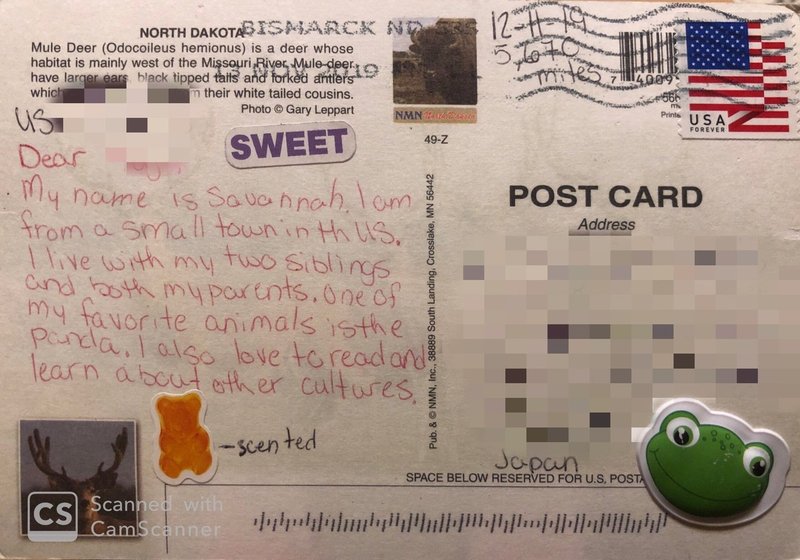 NORTH DAKOTA
Mule Deer (Odocoileus hemionus) is a deer whose
habitat is mainly west of the Missouri River. Mule deer
have larger ears, black tipped tails and forked antlers
which their white tailed cousins.
Photo © Gary Leppart
BISMARCK ND
13 NOV 2019
NMN North Dakota
49-Z
12-11-19
5,670
miles
7 4009
USA
FOREVER
US
SWEET
Dear
My name is Savannah. I am
from a small town in th US.
I live with my two siblings
and both my parents. One of
my favorite animals is the
panda. I also love to read and
learn about other cultures.
-scented
Pub. & © NMN, Inc., 38889 South Landing, Crosslake, MN 56442
POST CARD
Address
Japan
SPACE BELOW RESERVED FOR U.S. POSTA
CS Scanned with
CamScanner